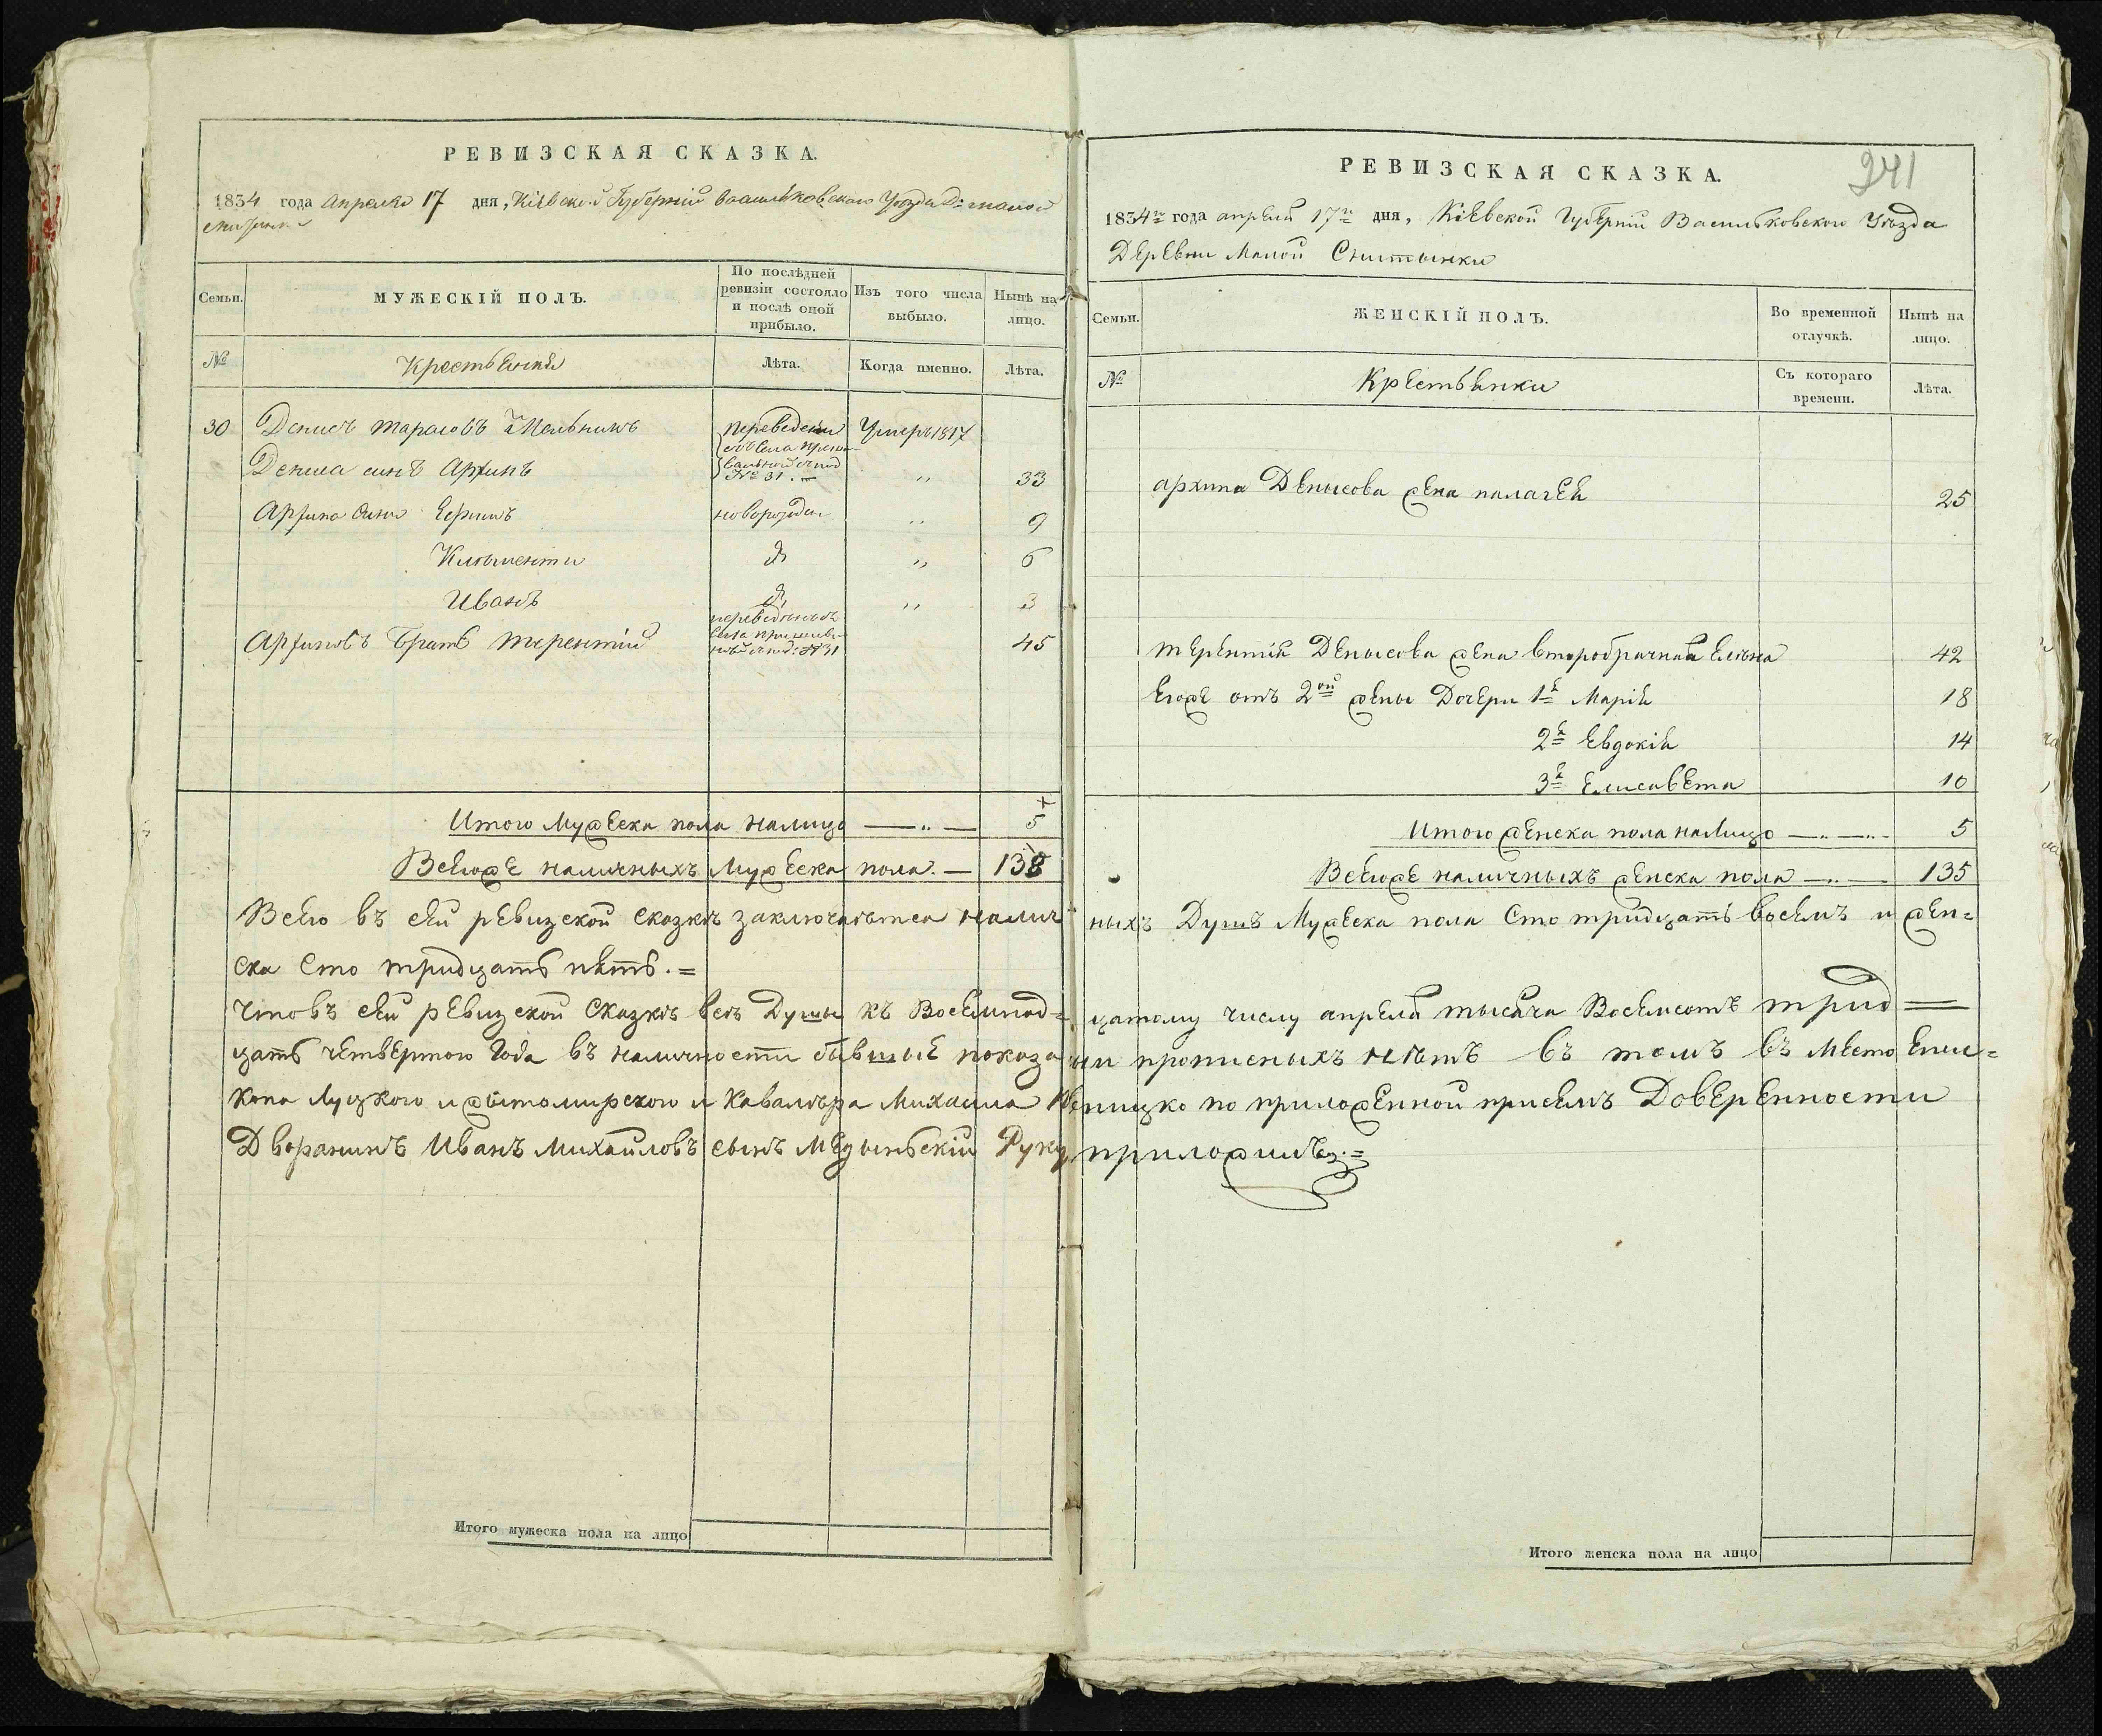 РЕВИЗСКАЯ СКАЗКА.
1834 года Апреля 17 дня, Кіевской Губерніи Васильковскаго Уезда Д: малой
снитинки
Семьи.
МУЖЕСКІЙ ПОЛЪ.
По послѣдней ревизіи состояло и послѣ оной прибыло.
Изъ того числа выбыло.
Нынѣ на лицо.
№
Крестьяне
Лѣта.
Когда именно.
Лѣта.
30 Денисъ тарасовъ Мельникъ переведены Умеръ 1817
Дениса синъ Архипъ №31. „ 33
Архипа сини Ефимъ новорожден „ 9
Клементи „ 6
Иванъ „ 3
Архиповъ братъ терентій 45
Итого Мужеска пола налицо — „ — 5
Всегоже наличныхъ Мужеска пола. — 138
РЕВИЗСКАЯ СКАЗКА.
241
1834го года апреля 17го дня, Кіевской Губерніи Васильковского Уѣзда
Деревни Малой Снитынки
Семьи.
ЖЕНСКІЙ ПОЛЪ.
Во временной отлучкѣ.
Нынѣ на лицо.
№
Крестьянки
Съ котораго времени.
Лѣта.
архипа Денысова жена палагея 25
терентія Денысова жена второбрачная Елѣна 42
Егоже отъ 2ой жены Дочери 1я Марія 18
2я Евдокія 14
3я Елисавета 10
Итого женска пола налицо — „ — „ 5
Всегоже наличныхъ женска пола — „ — 135
Всего въ сей ревизской сказкѣ заключаѣтся наличныхъ Душъ Мужеска пола Сто тридцать восемъ и жен=
ска Сто тридцать пять. =
Что въ сей ревизской Сказкѣ всѣ Души къ Восемнад=цатому числу апреля тысяча Восемсотъ трид=
цать четвертого Года въ наличности бывшыѣ показаны прописныхъ нѣтъ въ томъ въ Место Епис=
копа Луцкого и житомирского и Кавалѣра Михаила Пеницко по приложенной присемъ Доверенности
Дворанинъ Иванъ Михайловъ сынъ Медынскій Руку приложилъ. =
Итого мужеска пола на лицо
Итого женска пола на лицо